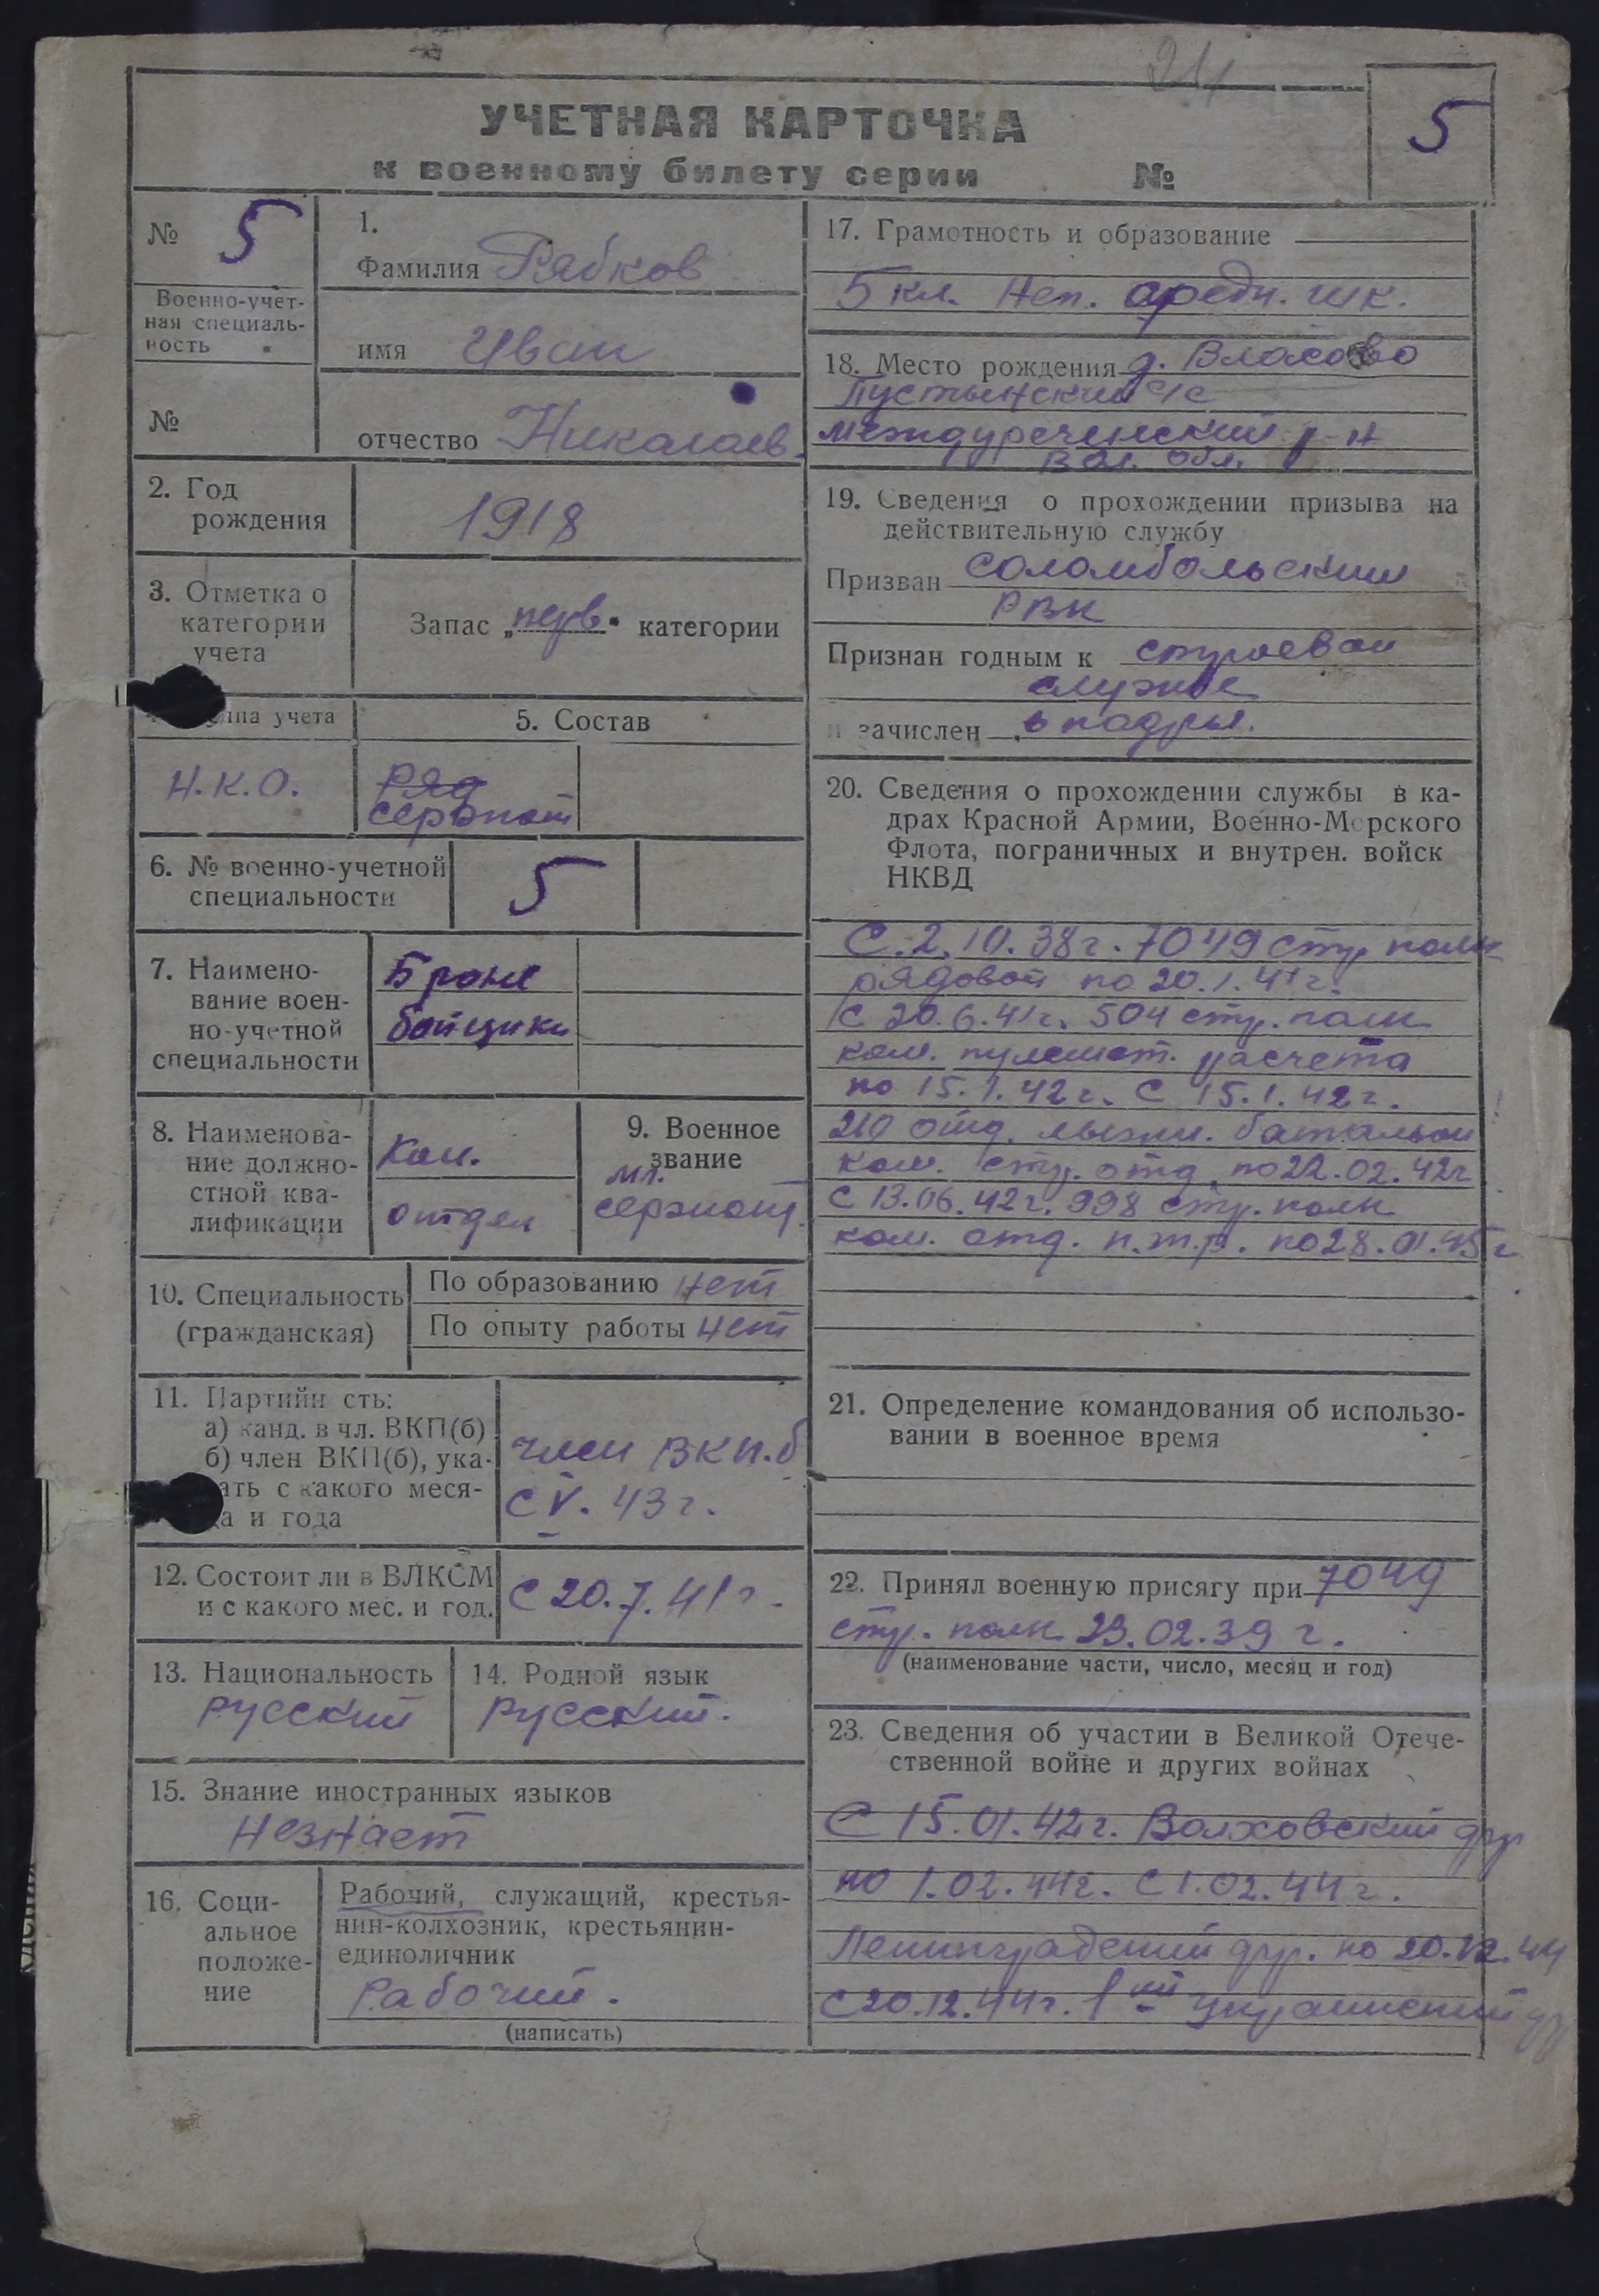 21
УЧЕТНАЯ КАРТОЧКА
к военному билету серии №
5
№ 5
Военно-учет-
ная специаль-
ность
№
1.
Фамилия Рябков
имя Иван
отчество Николаев.
2. Год
рождения
1918
3. Отметка о
категории
учета
Запас „перв“ категории
па учета
Н.К.О.
5. Состав
Ряд
сержант
6. № военно-учетной
специальности
5
7. Наимено-
вание воен-
но-учетной
специальности
Броне
бойщики
8. Наименова-
ние должно-
стной ква-
лификации
Ком.
отдел
9. Военное
звание
мл.
сержант.
10. Специальность
(гражданская)
По образованию нет
По опыту работы нет
11. Партийн сть:
а) канд. в чл. ВКП(б)
б) член ВКП(б), ука-
ать с какого меся-
ца и года
член ВКП.б
с V. 43 г.
12. Состоит ли в ВЛКСМ
и с какого мес. и год.
с 20.7.41 г.
13. Национальность
русский
14. Родной язык
русский.
15. Знание иностранных языков
незнает
16. Соци-
альное
положе-
ние
Рабочий, служащий, крестья-
нин-колхозник, крестьянин-
единоличник
Рабочий.
(написать)
17. Грамотность и образование
5 кл. Неп. средн. шк.
18. Место рождения д. Власово
Пустынский с/с
междуреченский р-н
Вол. обл.
19. Сведения о прохождении призыва на
действительную службу
Призван соломбольский
РВК
Признан годным к строевой
службе
и зачислен в кадры.
20. Сведения о прохождении службы в ка-
драх Красной Армии, Военно-Морского
Флота, пограничных и внутрен. войск
НКВД
С 2.10.38 г. 7049 стр полк
рядовой по 20.1.41 г.
с 20.6.41 г. 504 стр. полк
ком. пулемет. расчета
по 15.1.42 г. С 15.1.42 г.
210 отд. лыжн. батальон
ком. стр. отд. по 22.02.42 г
С 13.06.42 г. 998 стр. полк
ком. отд. п.т.р. по 28.01.45 г
21. Определение командования об использо-
вании в военное время
22. Принял военную присягу при 7049
стр. полк 23.02.39 г.
(наименование части, число, месяц и год)
23. Сведения об участии в Великой Отече-
ственной войне и других войнах
С 15.01.42 г. Волховский фр
по 1.02.44 г. С 1.02.44 г.
Ленинградский фр. по 20.12.44
с 20.12.44 г. 1 ый украинский фр